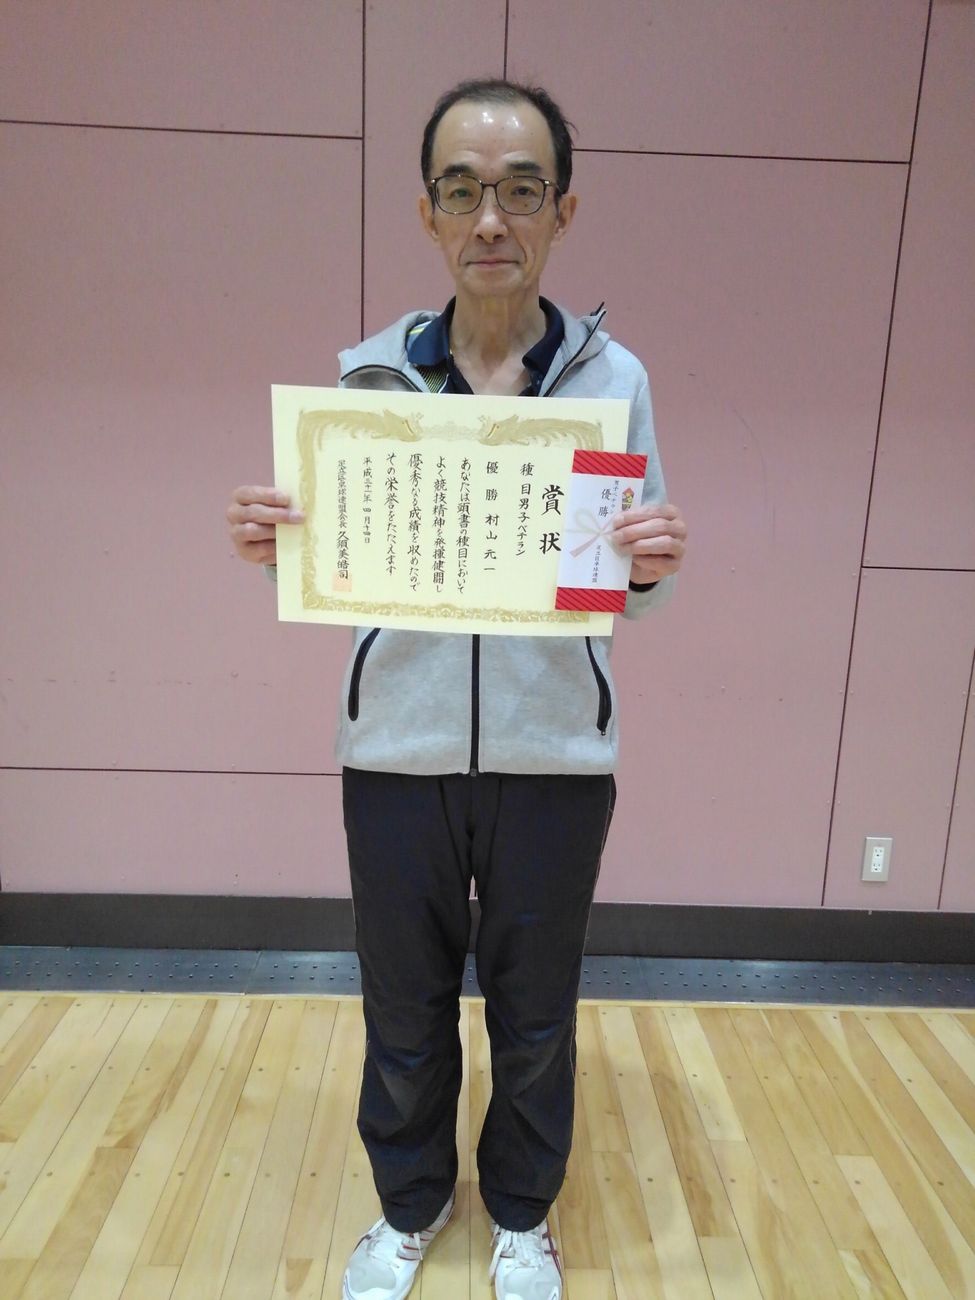 賞状
種目男子ベテラン
優勝 村山元一
あなたは頭書の種目において
よく競技精神を発揮健闘し
優秀なる成績を収めたので
その栄誉をたたえます
平成三十一年四月十四日
足立区卓球連盟会長 久須美皓司
男子ベテラン
優勝
足立区卓球連盟